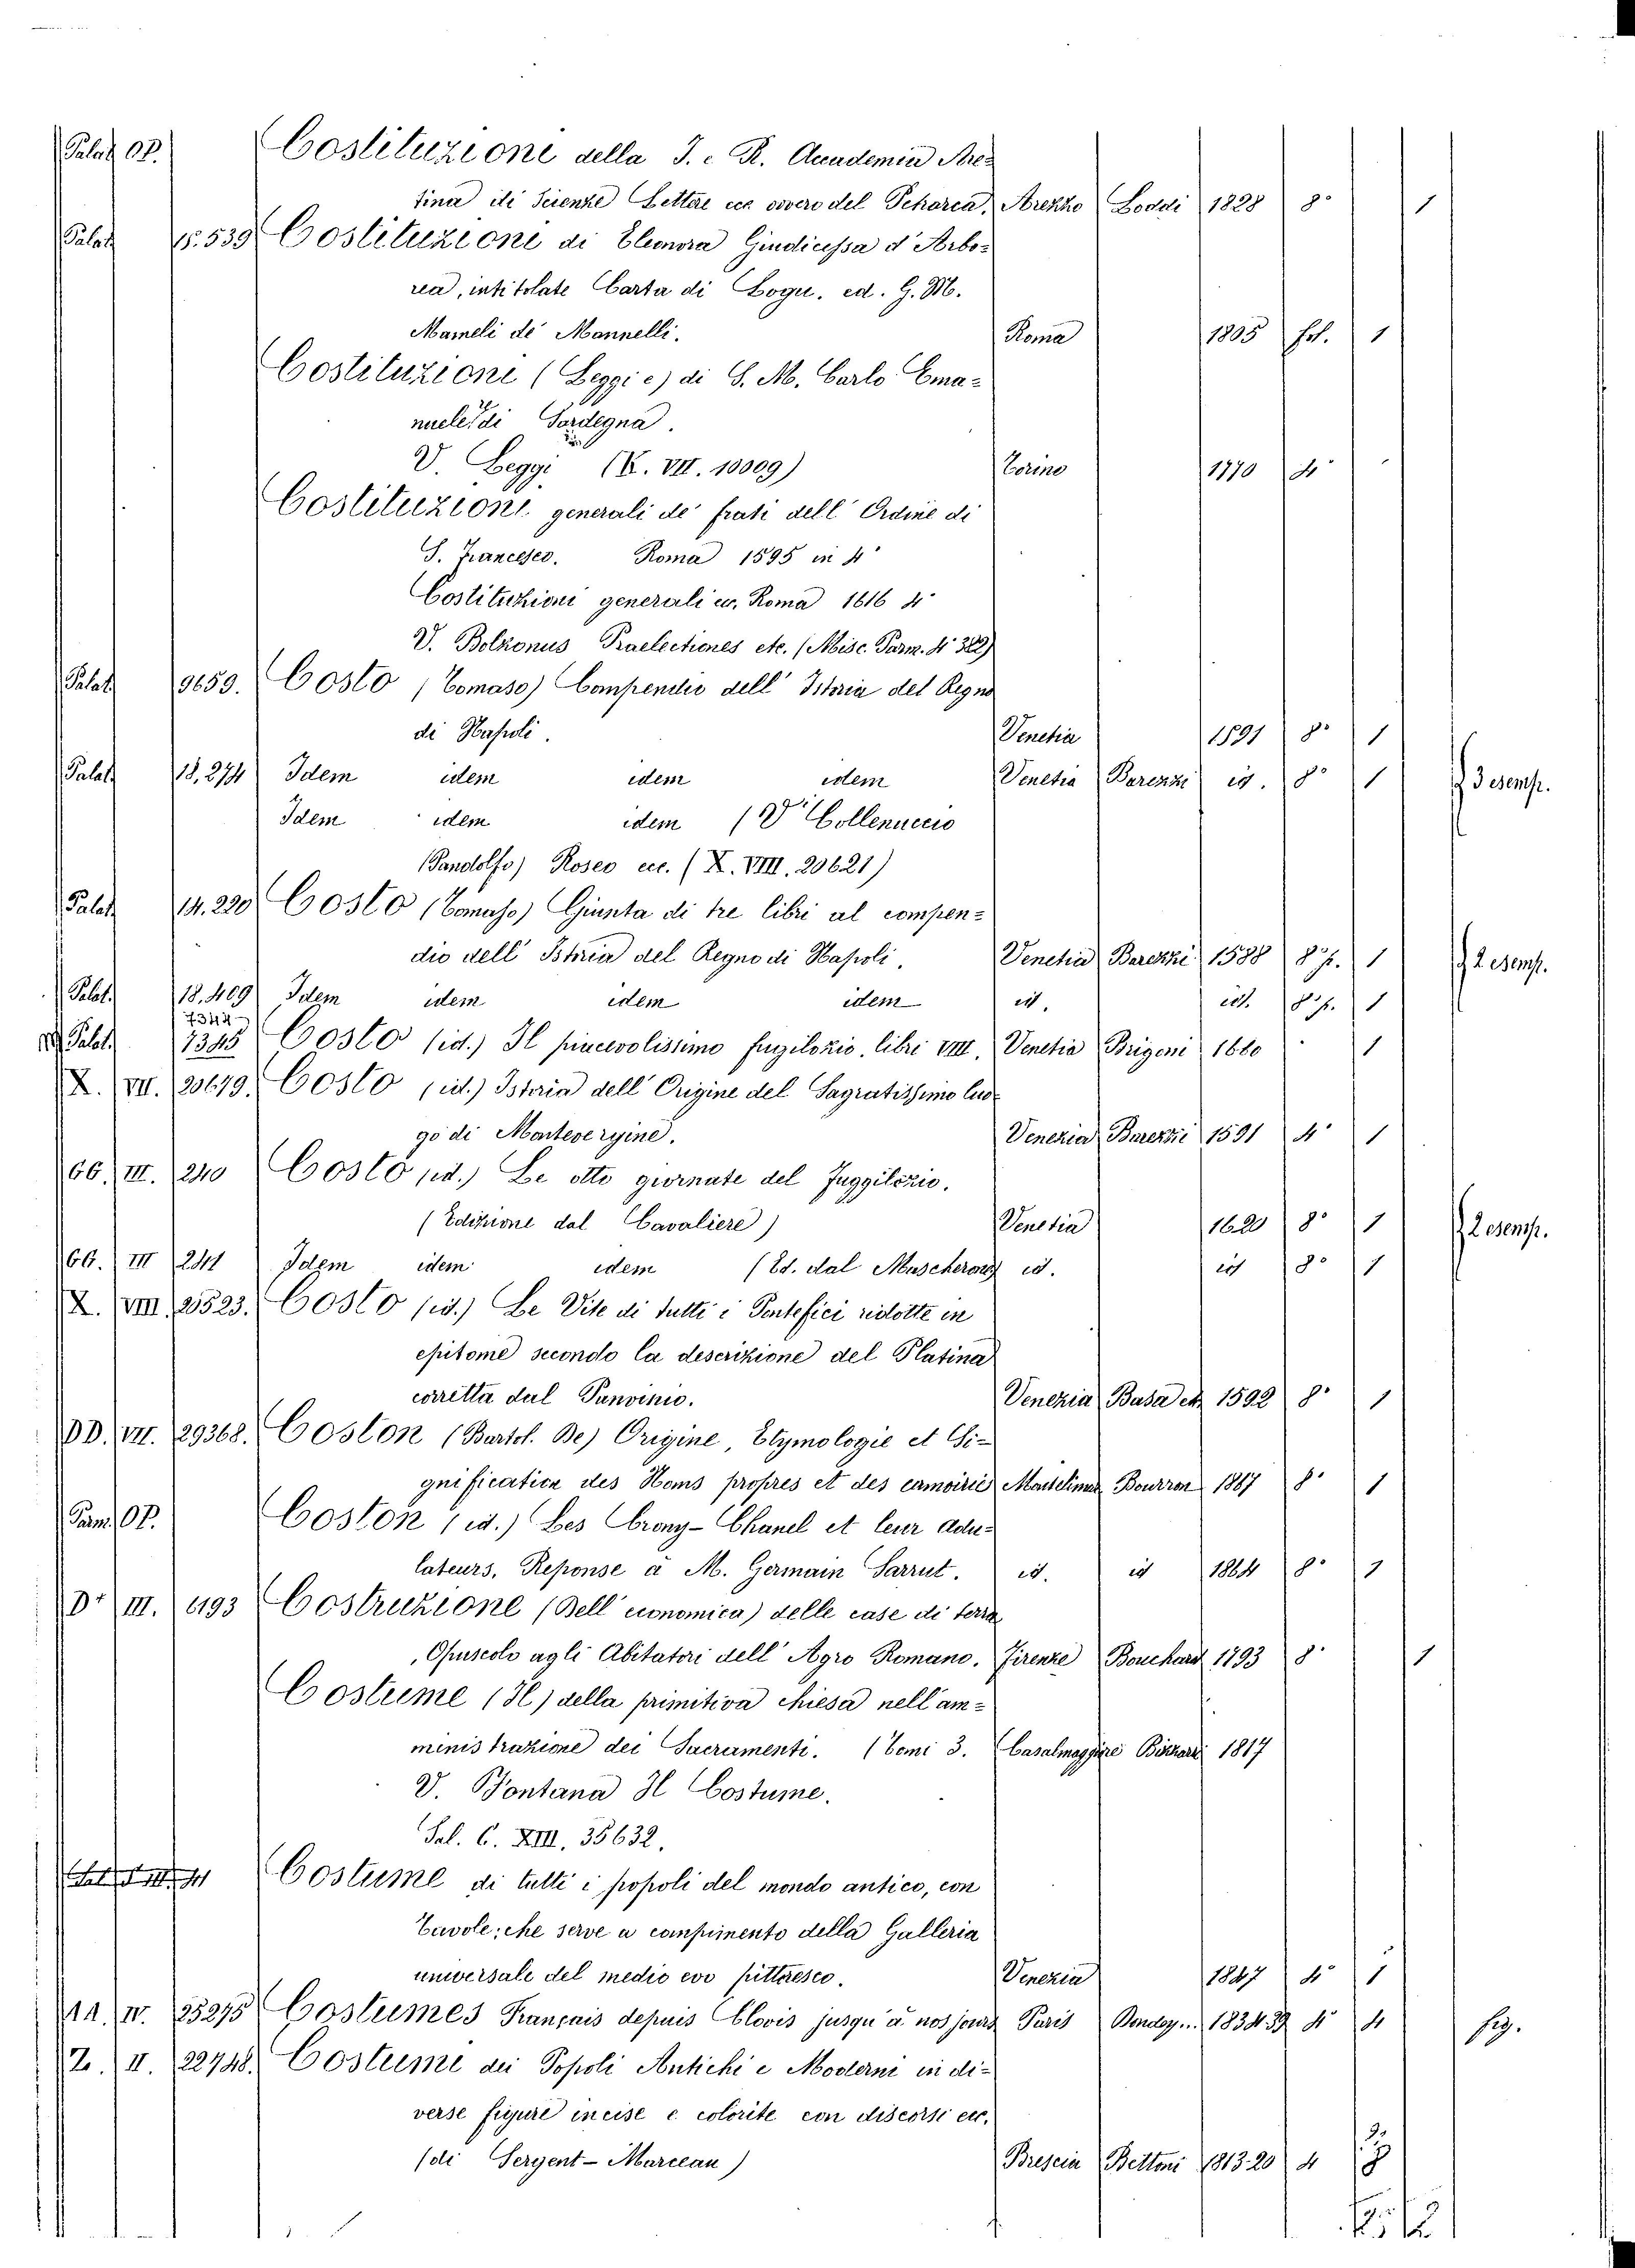 Palat OP. Costituzione della I. e R. Accademia Are=
tina di Scienze Lettere ecc ovvero del Petrarca. Arezzo Loddi 1828 8° 1
Palat 15.539 Costituzioni di Eleonora Giudicessa d'Arbo=
rea, intitolate Carta di Logu. ed. G. M.
Mameli de' Mannelli. Roma 1805 fol. 1
Costituzioni (Leggi e) di S. M. Carlo Ema=
nuele di Sardegna.
V. Leggi (K. VII. 10009) Torino 1770 4°
Costituzioni generali de' frati dell'Ordine di
S. Francesco. Roma 1595 in 4°
Costituzioni generali ec. Roma 1616 4°
V. Bolzonus Praelectiones etc. (Misc. Parm. 4° 322)
Palat 9659. Costo (Tomaso) Compendio dell'Istoria del Regno
di Napoli. Venetia 1591 8° 1
Palat 18,274 Idem idem idem idem Venetia Barezzi id. 8° 1 3 esemp.
Idem idem idem (V. Collenuccio
(Pandolfo) Roseo ecc. (X. VIII. 20621)
Palat 14.220 Costo (Tomaso) Giunta di tre libri al compen=
dio dell'Istoria del Regno di Napoli. Venetia Barezzi 1588 8° 1 2 esemp.
Palat. 18.409 Idem idem idem idem id. id. 8° 1
7344
Palat. 7345 Costo (id.) Il piacevolissimo fuggilozio, libri VIII. Venetia Brigoni 1680 1
X. VII. 20679. Costo (id.) Istoria dell'Origine del Sagratissimo luo=
go di Montevergine. Venezia Barezzi 1591 4° 1
66. III. 240 Costo (id.) Le otto giornate del Fuggilozio.
(Edizione dal Cavaliere) Venetia 1620 8° 1 2 esemp.
66. III 241 Idem idem idem (Ed. dal Mascheroni id. id 8° 1
X. VIII 20523. Costo (id.) Le Vite di tutti i Pontefici ridotte in
epitome secondo la descrizione del Platina
corretta dal Panvinio. Venezia Basa etc 1592 8° 1
DD. VII. 29368. Coston (Bartol. De) Origine, Etymologie et Si=
gnification des Noms propres et des armoiries Montelimar Bourron 1867 8° 1
Parm. OP. Coston (id.) Les Crony-Chanel et leur adu=
lateurs. Reponse à M. Germain Sarrut. id. id 1864 8° 1
D+ III. 6193 Costruzione (Dell'economica) delle case di terra
Opuscolo agli Abitatori dell'Agro Romano. Firenze Bouchard 1793 8° 1
Costume (Il) della primitiva chiesa nell'am=
ministrazione dei Sacramenti. (Tomi 3. Casalmaggiore Bizzarri 1817
V. Fontana Il Costume.
Sal. C. XIII. 35632.
Costume di tutti i popoli del mondo antico, con
Tavole; che serve a compimento della Galleria
universale del medio evo pittoresco. Venezia 1847 4° 1
AA. IV. 25275 Costumes Français depuis Clovis jusqu'à nos jours Paris 1834.39 4° 4 fig.
Z. II. 22748. Costume dei Popoli Antichi e Moderni in di=
verse figure incise e colorite con discorsi etc.
(di Sergent-Marceau) Brescia Bettoni 1813-20 4